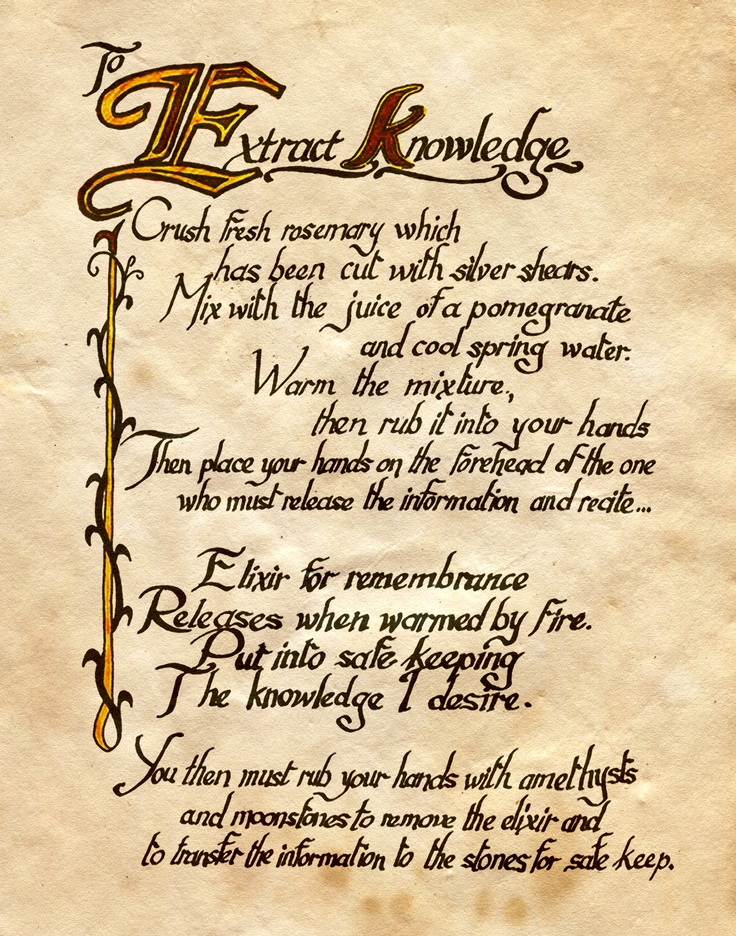 To
Extract Knowledge
Crush fresh rosemary which
has been cut with silver shears.
Mix with the juice of a pomegranate
and cool spring water.
Warm the mixture.,
then rub it into your hands
Then place your hands on the forehead of the one
who must release the information and recite...
Elixir for remembrance
Releases when warmed by fire.
Put into safe keeping
The knowledge I desire.
You then must rub your hands with amethysts
and moonstones to remove the elixir and
to transfer the information to the stones for safe keep.